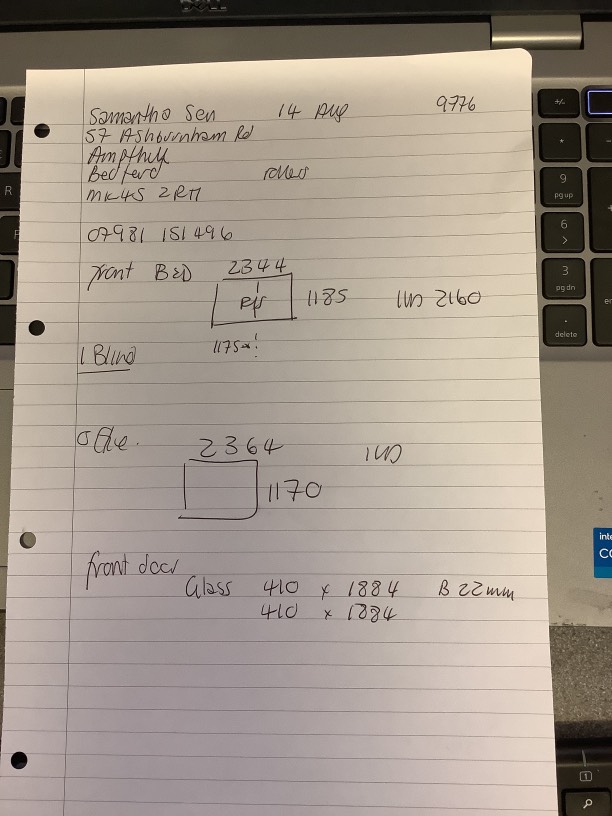 Samantha Sen 14 Aug 9776
57 Ashburnham Rd
Ampthill
Bedford rollers
MK45 2RH
07981 151 496
front BED 2344
R/S 1185 IW 2160
1175
1 Blind
Office. 2364 IW
1170
front door
Glass 410 x 1884 B 22mm
410 x 1884
DELL
+/-
*
9
pg up
6
>
3
pg dn
.
delete
R
1